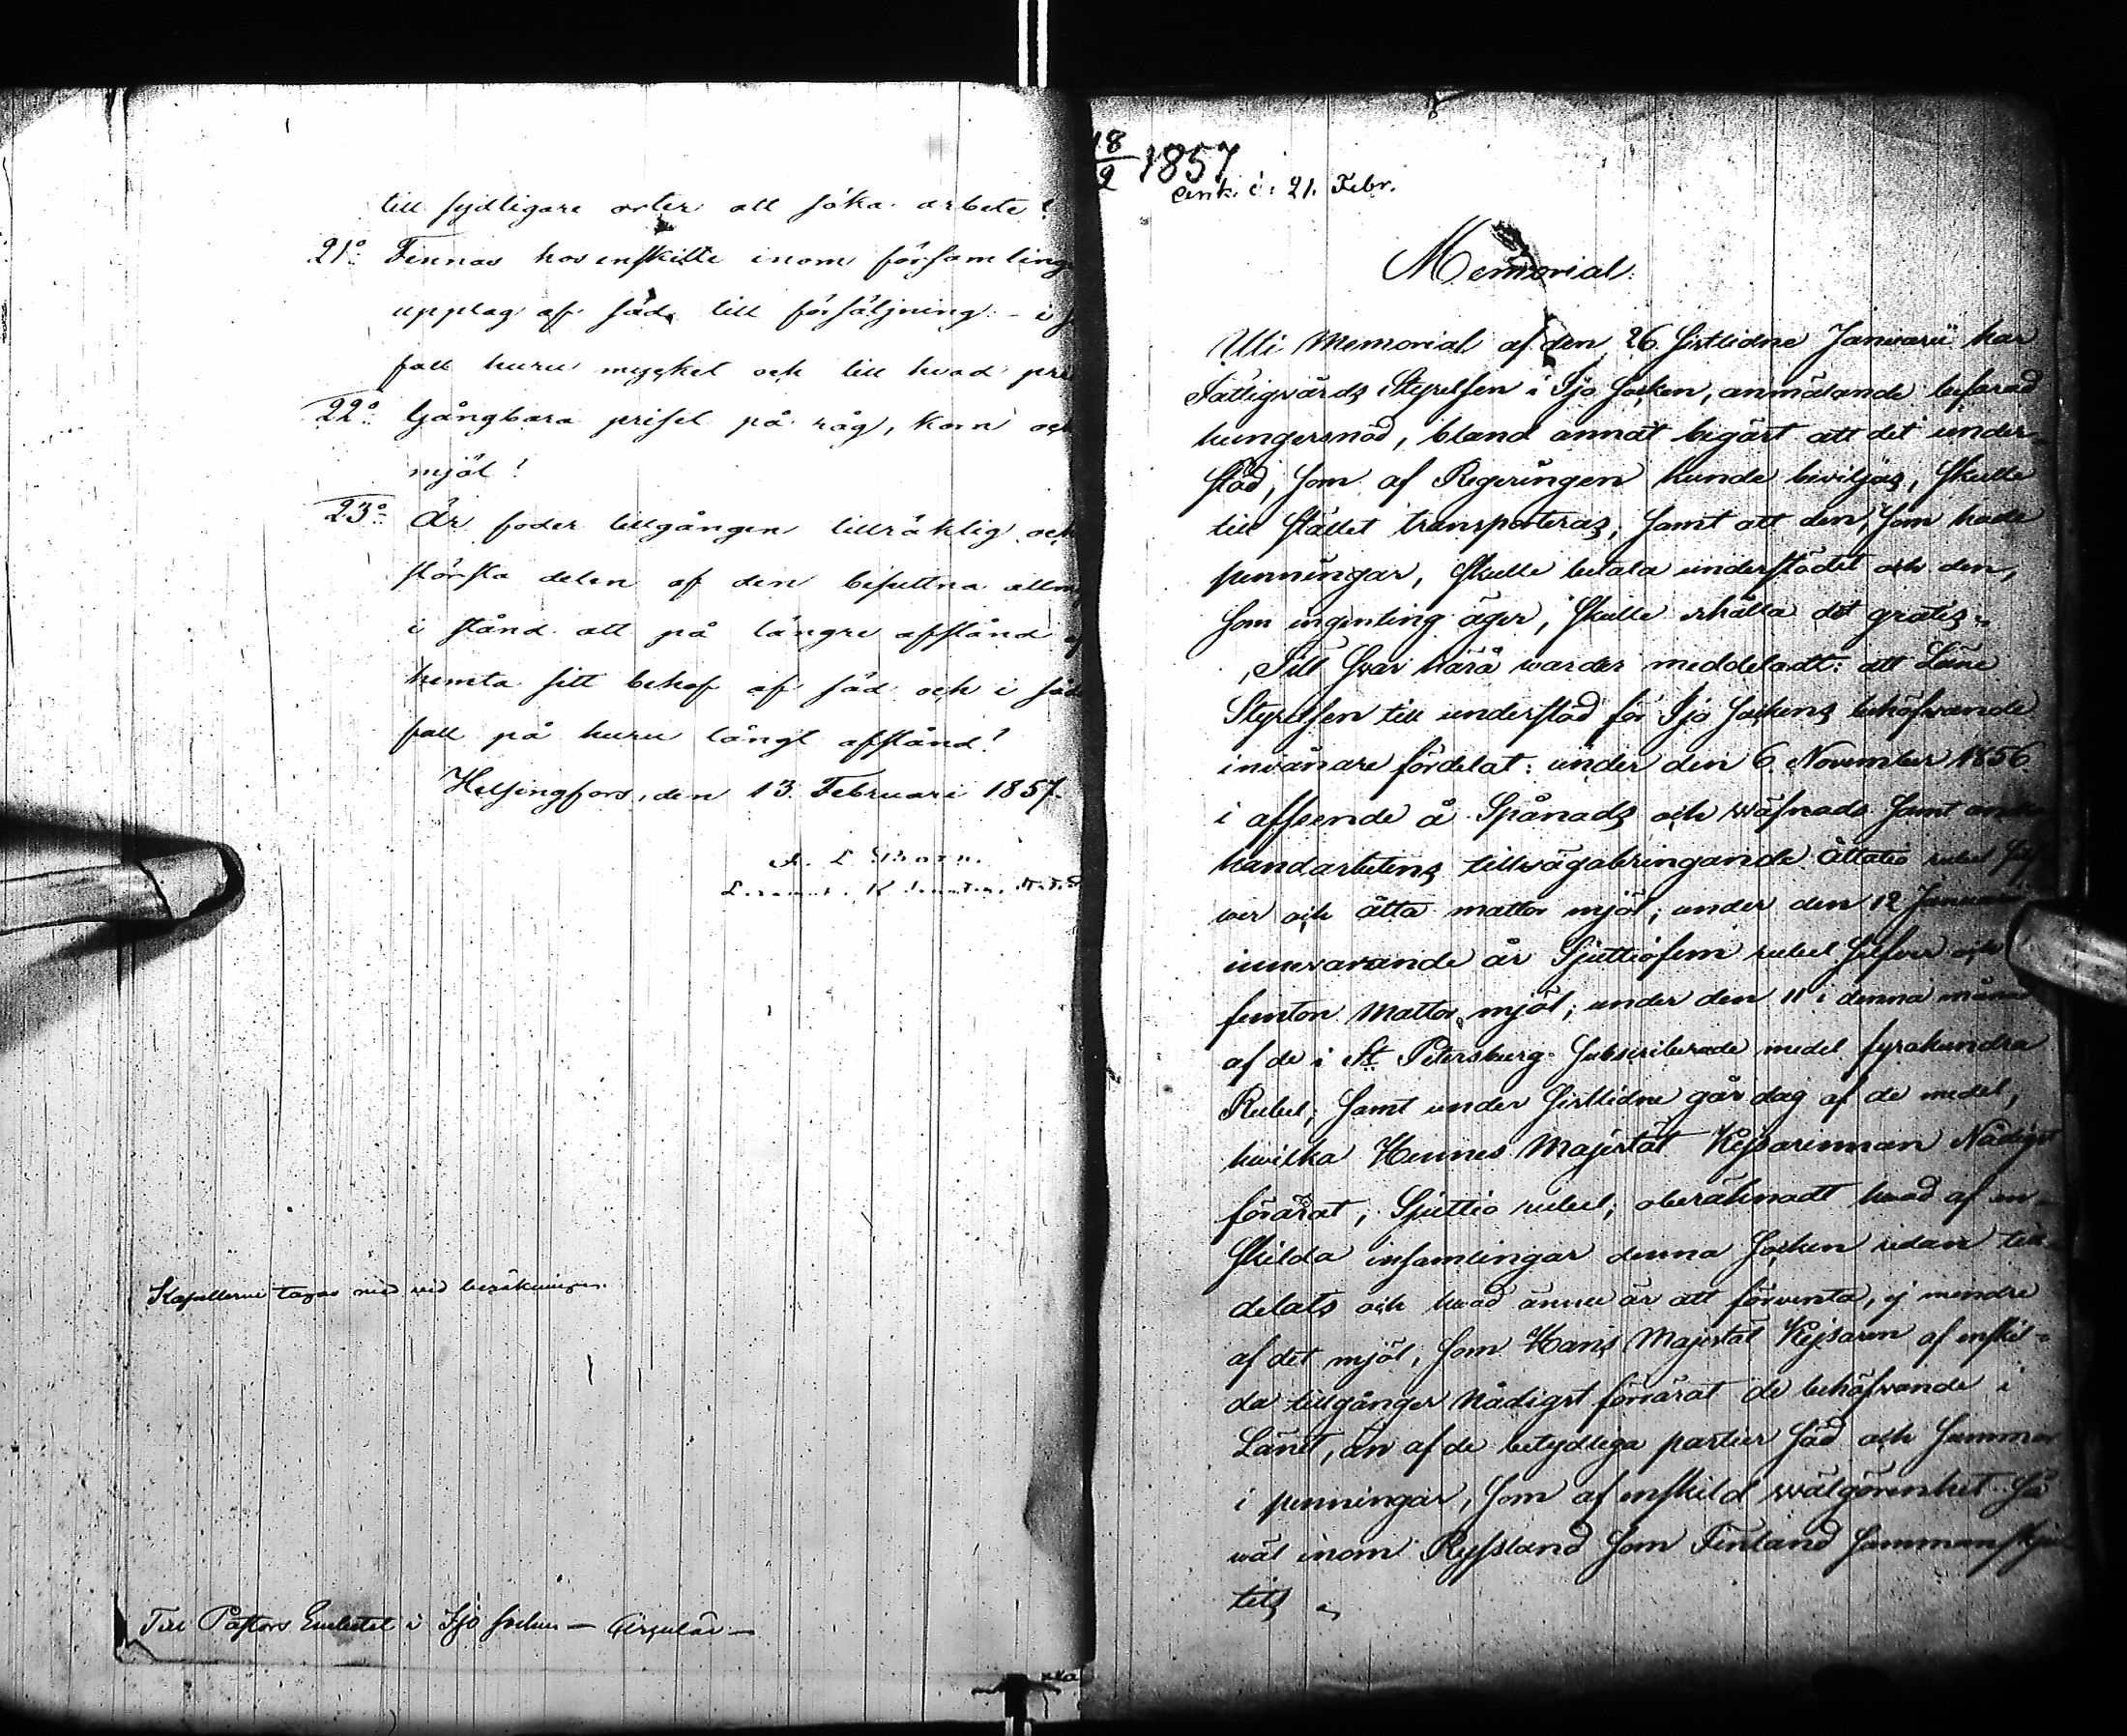 till sydligare orter att söka arbete?
21:o Finnas hos enskilte inom församling
upplag af säd till försäljning - i
fall huru mycket och till hvad pri
22:o Gångbara priset på råg, korn och
mjöl?
23:o Är foder tillgången tillräklig och
största delen af den besuttna allm
i stånd att på längre afstånd
hemta sitt behof af säd och i såd
fall på huru långt afstånd?
Helsingfors, den 13 Februari 1857.
Kapellerne tagas med vid beräkningen.
Till Pastors Embetet i Ijo socken — Cirkulär —
18/2 1857
ank. d: 21. Febr.
Memorial.
Uti Memorial af den 26 sistlidne Januarii har
Fattigvårds Styrelsen i Ijo Socken, anmälande befarad
hungersnöd, bland annat begärt att det under-
stöd, som af Regeringen kunde beviljas, skulle
till stället transporteras, samt att den, som hade
penningar, skulle betala understödet och den,
som ingenting äger, skulle erhålla det gratis.
Till svar härå warder meddeladt: att Läne
Styrelsen till understöd för Ijo Sockens behöfwande
inwånare fördelat: under den 6. November 1856
i afseende å Spånads och wäfnads samt
handarbetens tillwägabringande åttatio rubel
wer och åtta mattor mjöl; under den 12 Januarii
innewarande år Sjuttiofem rubel Silfwer och
femton mattor mjöl; under den 11 i denna månad
af de i St. Petersburg subscriberade medel fyrahundra
Rubel; samt under sistlidne gårdag af de medel,
hwilka Hennes Majestät Kejsarinnan Nådigst
förärat, Sjuttio rubel; oberäknadt hwad af en-
skilda insamlingar denna Socken redan till-
delats och hwad ännu är att förwänta, ej mindre
af det mjöl, som Hans Majestät Kejsaren af enskil-
da tillgångar Nådigst förärat de behöfwande i
Länet, än af de betydliga partier säd och summor
i penningar, som af enskild wälgörenhet så
wäl inom Ryssland som Finland sammanskju
tits